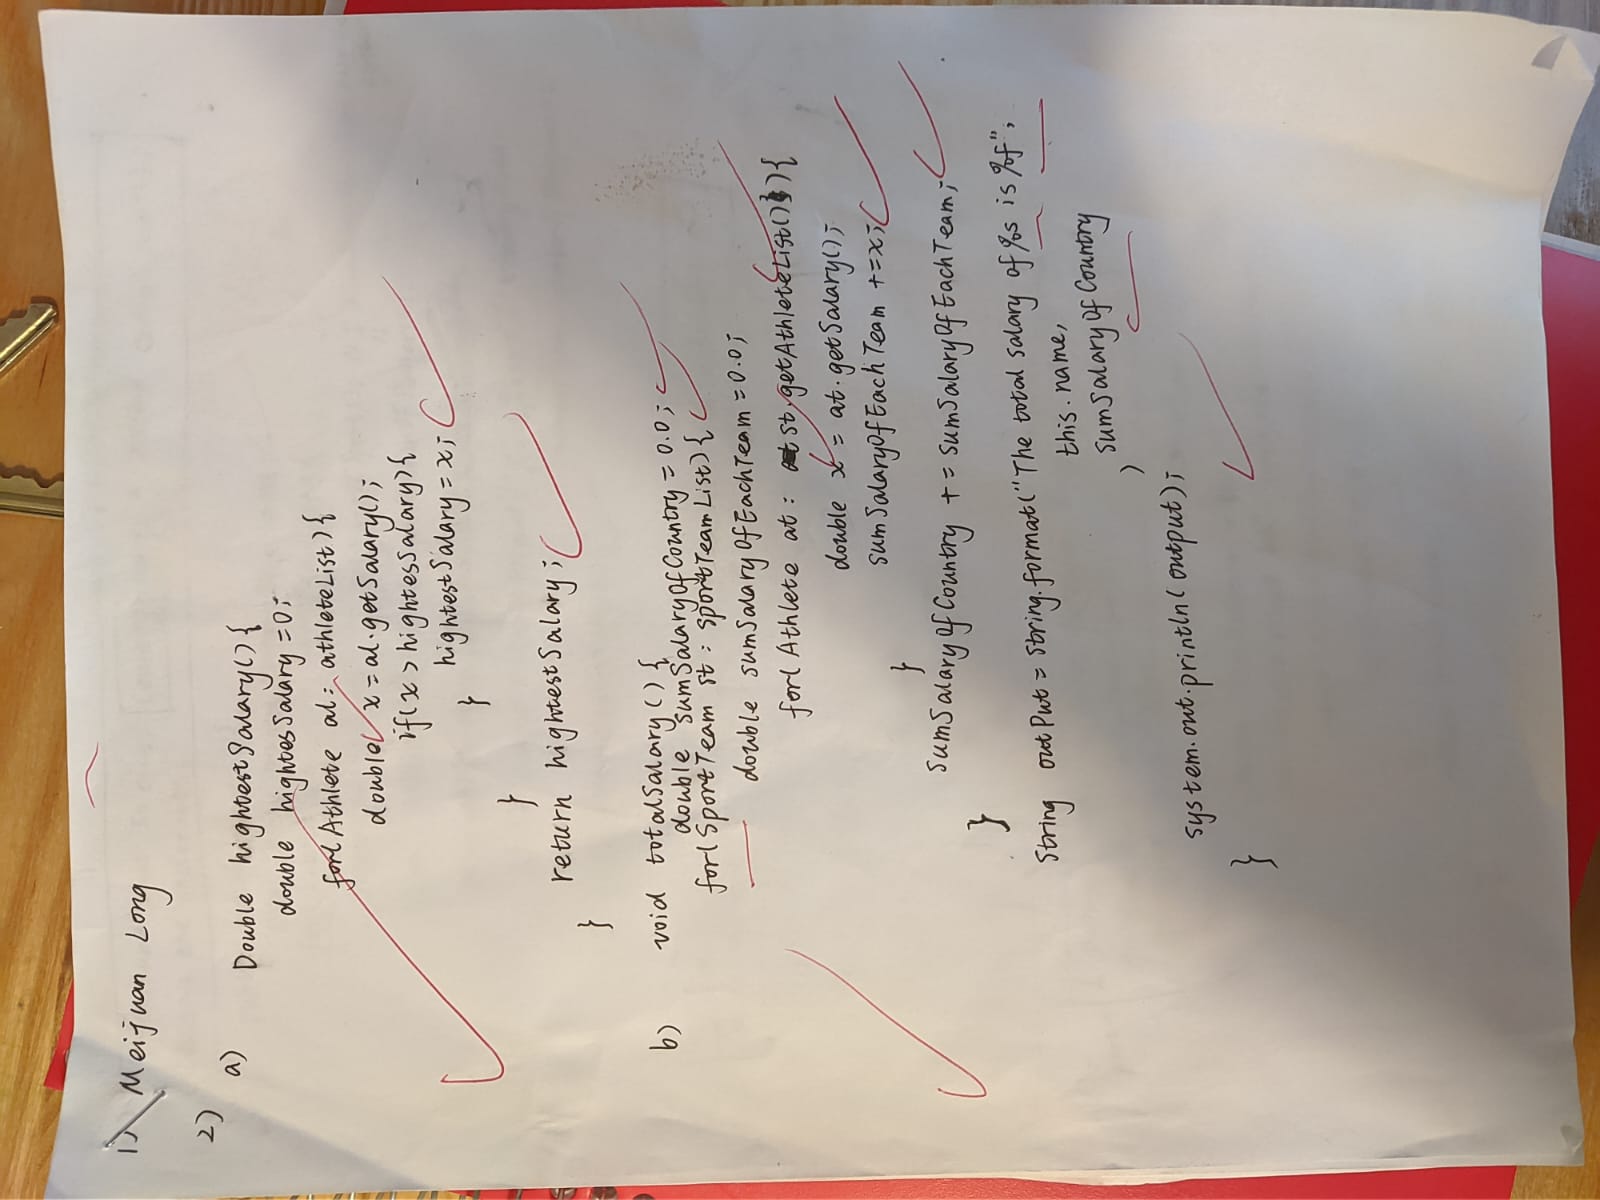 1) Meijuan Long
2) a) Double hightestSalary() {
double hightesSalary = 0;
for( Athlete al : athleteList) {
double x = al.getSalary();
if( x > hightesSalary) {
hightestSalary = x;
}
}
return hightestSalary;
}
b) void totalSalary() {
double sumSalaryOfCountry = 0.0;
for( SportTeam st : sportTeamList) {
double sumSalaryOfEachTeam = 0.0;
for( Athlete at : st.getAthleteList()) {
double x = at.getSalary();
sumSalaryOfEachTeam += x;
}
sumSalaryOfCountry += sumSalaryOfEachTeam;
}
String outPut = String.format( "The total salary of %s is %f",
this.name,
sumSalaryOfCountry
)
system.out.println( output);
}